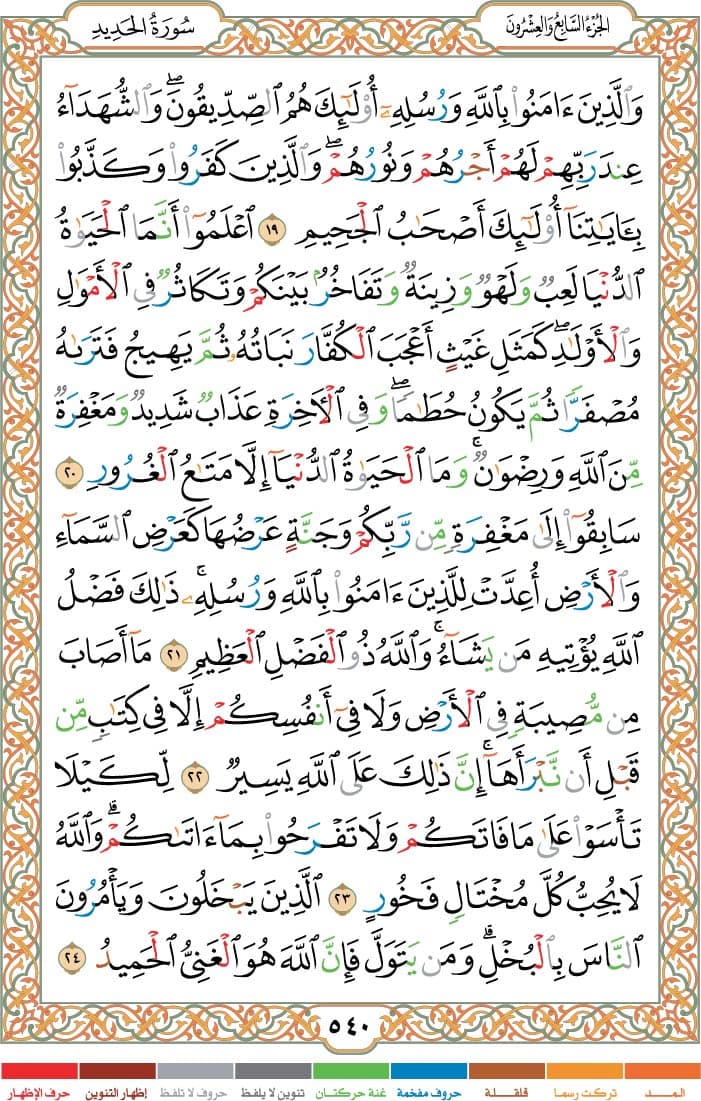 الجُزْءُ السَّابِعُ وَالعِشْرُونَ
سُورَةُ الحَدِيدِ
وَٱلَّذِينَ ءَامَنُوا۟ بِٱللَّهِ وَرُسُلِهِۦٓ أُو۟لَٰٓئِكَ هُمُ ٱلصِّدِّيقُونَ ۖ وَٱلشُّهَدَآءُ
عِندَ رَبِّهِمْ لَهُمْ أَجْرُهُمْ وَنُورُهُمْ ۖ وَٱلَّذِينَ كَفَرُوا۟ وَكَذَّبُوا۟
بِـَٔايَٰتِنَآ أُو۟لَٰٓئِكَ أَصْحَٰبُ ٱلْجَحِيمِ ١٩ ٱعْلَمُوٓا۟ أَنَّمَا ٱلْحَيَوٰةُ
ٱلدُّنْيَا لَعِبٌ وَلَهْوٌ وَزِينَةٌ وَتَفَاخُرٌۢ بَيْنَكُمْ وَتَكَاثُرٌ فِى ٱلْأَمْوَٰلِ
وَٱلْأَوْلَٰدِ ۖ كَمَثَلِ غَيْثٍ أَعْجَبَ ٱلْكُفَّارَ نَبَاتُهُۥ ثُمَّ يَهِيجُ فَتَرَىٰهُ
مُصْفَرًّا ثُمَّ يَكُونُ حُطَٰمًا ۖ وَفِى ٱلْـَٔاخِرَةِ عَذَابٌ شَدِيدٌ وَمَغْفِرَةٌ
مِّنَ ٱللَّهِ وَرِضْوَٰنٌ ۚ وَمَا ٱلْحَيَوٰةُ ٱلدُّنْيَآ إِلَّا مَتَٰعُ ٱلْغُرُورِ ٢٠
سَابِقُوٓا۟ إِلَىٰ مَغْفِرَةٍ مِّن رَّبِّكُمْ وَجَنَّةٍ عَرْضُهَا كَعَرْضِ ٱلسَّمَآءِ
وَٱلْأَرْضِ أُعِدَّتْ لِلَّذِينَ ءَامَنُوا۟ بِٱللَّهِ وَرُسُلِهِۦ ۚ ذَٰلِكَ فَضْلُ
ٱللَّهِ يُؤْتِيهِ مَن يَشَآءُ ۚ وَٱللَّهُ ذُو ٱلْفَضْلِ ٱلْعَظِيمِ ٢١ مَآ أَصَابَ
مِن مُّصِيبَةٍ فِى ٱلْأَرْضِ وَلَا فِىٓ أَنفُسِكُمْ إِلَّا فِى كِتَٰبٍ مِّن
قَبْلِ أَن نَّبْرَأَهَآ ۚ إِنَّ ذَٰلِكَ عَلَى ٱللَّهِ يَسِيرٌ ٢٢ لِّكَيْلَا
تَأْسَوْا۟ عَلَىٰ مَا فَاتَكُمْ وَلَا تَفْرَحُوا۟ بِمَآ ءَاتَىٰكُمْ ۗ وَٱللَّهُ
لَا يُحِبُّ كُلَّ مُخْتَالٍ فَخُورٍ ٢٣ ٱلَّذِينَ يَبْخَلُونَ وَيَأْمُرُونَ
ٱلنَّاسَ بِٱلْبُخْلِ ۗ وَمَن يَتَوَلَّ فَإِنَّ ٱللَّهَ هُوَ ٱلْغَنِىُّ ٱلْحَمِيدُ ٢٤
٥٤٠
المـــد تركت رسما قلقـلـة حروف مفخمة غنة حركتان تنوين لا يلفظ حروف لا تلفظ إظهار التنوين حرف الإظهار